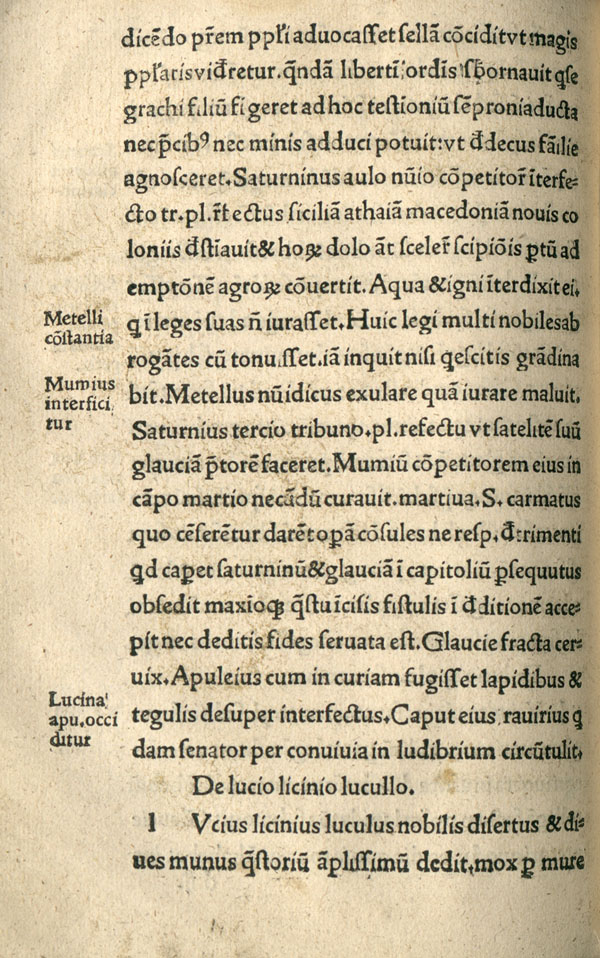 dicēdo pr̄em ppl̄i aduocasset sellā cōciditvt magis
ppl̄arisviđretur. qndā liberti ordīs sbornauit qse
grachi filiū fi geret ad hoc testioniū sēproniaducta
nec p̄cibꝰ nec minis adduci potuit: vt đdecus fāilie
agnosceret. Saturninus aulo nūio cōpetitor̄ īterfe⸗
cto tr. pl. r̄fectus siciliā athaiā macedoniā nouis co
loniis đstīauit & hoꝝ dolo āt sceler̄ scipiōis ꝑtū ad
emptōnē agroꝝ cōuertit. Aqua & igni īterdixit ei.
Metelli
cōstantia
qī leges suas n̄ iurasset. Huic legi multi nobiles ab
rogātes cū tonuisset. iā inquit nisi qescitis grādina
Mumius
interfici
tur
bit. Metellus nūidicus exulare quā iurare maluit.
Saturnius tercio tribuno. pl. refectu vt satelitē suū
glauciā p̄torē faceret. Mumiū cōpetitorem eius in
cāpo martio necādū curauit. martiua. S. carmatus
quo cēserētur darēt oꝑā cōsules ne resp. đtrimenti
qd caꝑet saturninū & glauciā ī capitoliū ꝑsequutus
obsedit maxioqꝫ q̄stu īcisis fistulis ī đditionē acce⸗
pit nec deditis fides seruata est. Glaucie fracta cer⸗
uix. Apuleius cum in curiam fugisset lapidibus &
Lucina
apu. occi
ditur
tegulis desuper interfectus. Caput eius rauirius q
dam senator per conuiuia in ludibrium circūtulit.
De lucio licinio lucullo.
l Vcius licinius luculus nobilis disertus & di⸗
ues munus q̄storiū āplissimū dedit. mox ꝑ mure